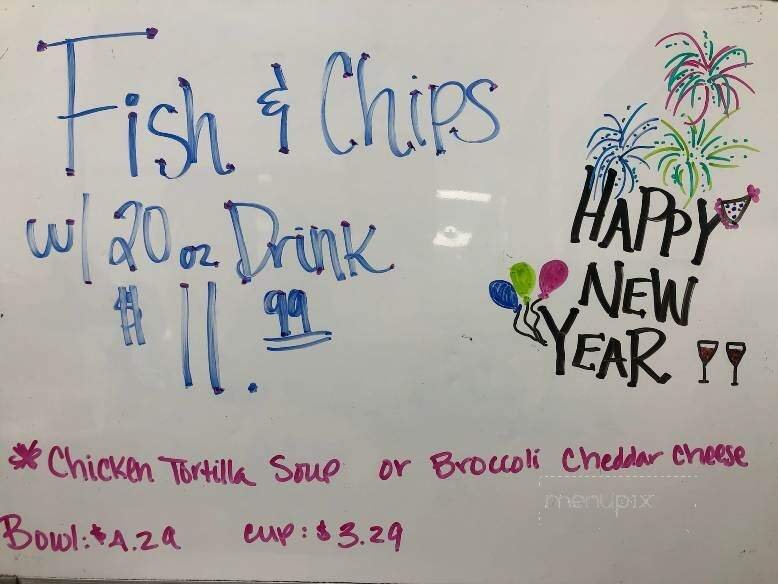 Fish & Chips
w/ 20 oz Drink
$ 11.99
HAPPY
NEW
YEAR
* Chicken Tortilla Soup or Broccoli Cheddar cheese
menupix
Bowl: $4.29 cup: $3.29